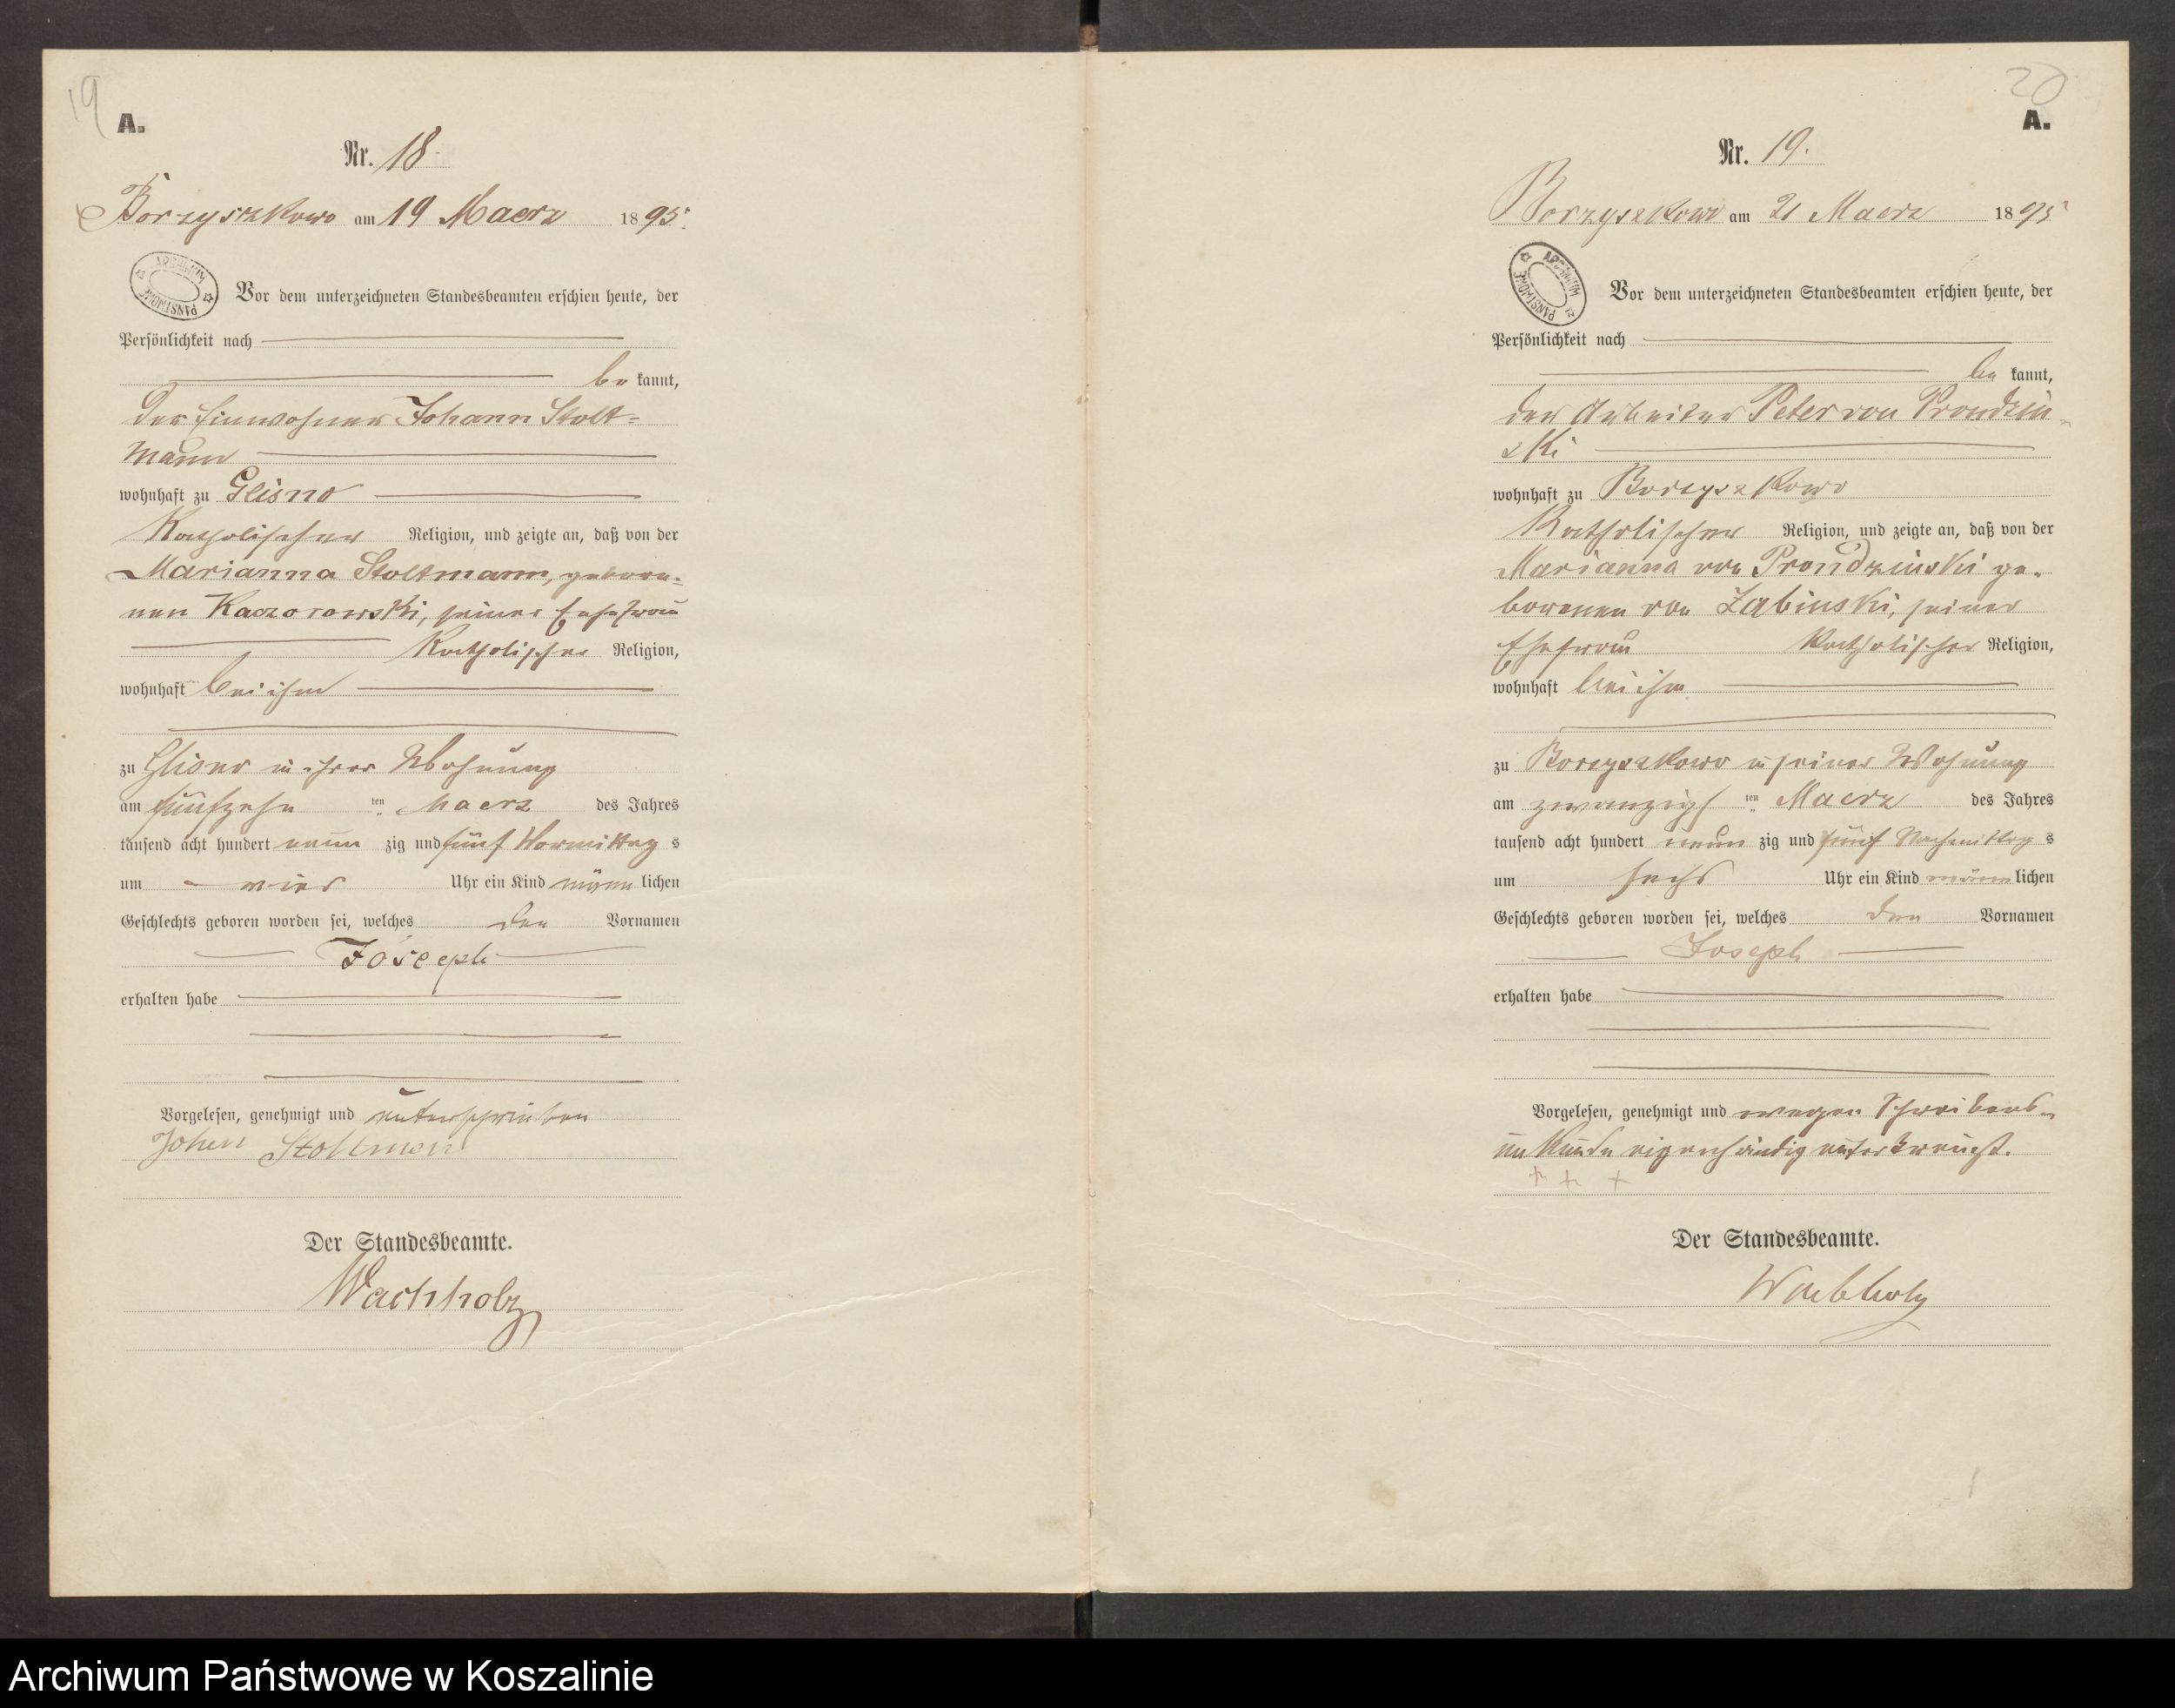 19
A.
Nr. 18
Borzyszkowo am 19 Maerz 1895.
ARCHIWUM PAŃSTWOWE
Vor dem unterzeichneten Standesbeamten erschien heute, der
Persönlichkeit nach
be kannt,
der Einwohner Johann Stolt=
mann
wohnhaft zu Glisno
Katholischer Religion, und zeigte an, daß von der
Marianna Stoltmann, gebore=
nen Kaczorowski, seiner Ehefrau
Katholischer Religion,
wohnhaft bei ihm
zu Glisno in ihrer Wohnung
am fünfzehn ten Maerz des Jahres
tausend acht hundert neun zig und fünf Vormittag s
um vier Uhr ein Kind männ lichen
Geschlechts geboren worden sei, welches den Vornamen
Joseph
erhalten habe
Vorgelesen, genehmigt und unterschrieben
Johen Stoltmen
Der Standesbeamte.
Wachholz
20
A.
Nr. 19.
Borzyszkowo am 21 Maerz 1895
ARCHIWUM PAŃSTWOWE
Vor dem unterzeichneten Standesbeamten erschien heute, der
Persönlichkeit nach
be kannt,
der Arbeiter Peter von Prondzin=
ski
wohnhaft zu Borzyszkowo
Katholischer Religion, und zeigte an, daß von der
Marianna von Prondzinski ge=
borenen von Zabinski, seiner
Ehefrau Katholischer Religion,
wohnhaft bei ihm
zu Borzyszkowo in seiner Wohnung
am zwanzigs ten Maerz des Jahres
tausend acht hundert neun zig und fünf Nachmittag s
um sechs Uhr ein Kind männ lichen
Geschlechts geboren worden sei, welches den Vornamen
Joseph
erhalten habe
Vorgelesen, genehmigt und wegen Schreibens=
unkunde eigenhändig unterkreuzt.
+ + +
Der Standesbeamte.
Wachholz
Archiwum Państwowe w Koszalinie